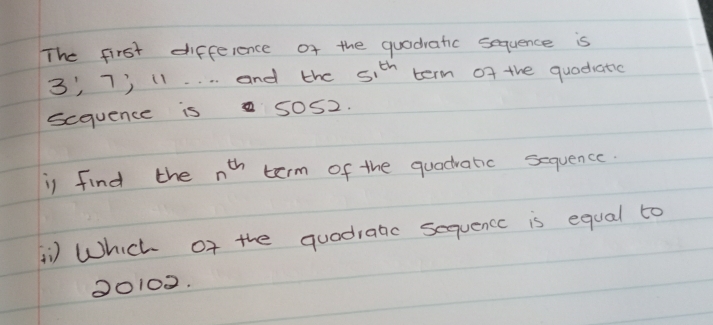 The first difference of the quadratic sequence is
3; 7; 11 .... and the 51th term of the quadratic
sequence is 5052.
i) find the nth term of the quadratic sequence.
ii) Which of the quadratic sequence is equal to
20102.